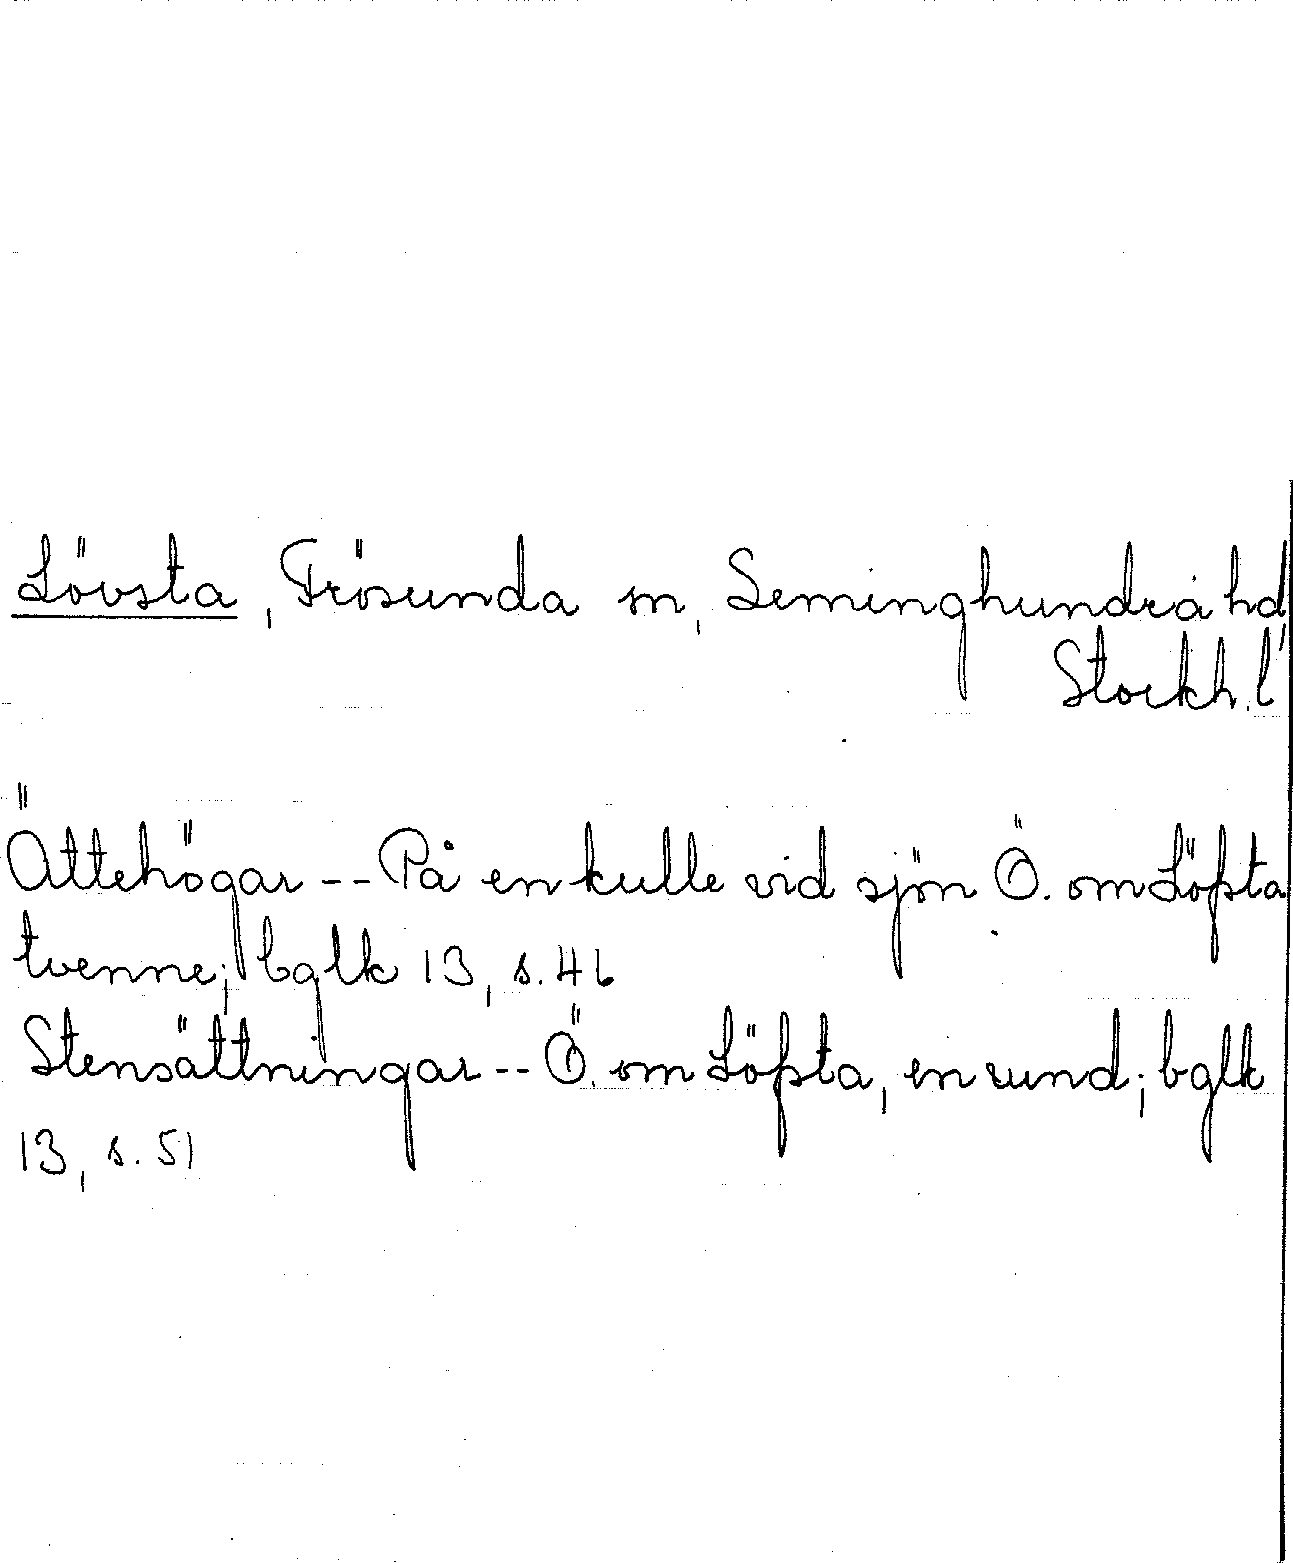 Lövsta, Frösunda sn, Seminghundra hd,
Stockh. l
Ättehögar -- På en kulle vid sjön Ö. om Löfsta
tvenne; bglk 13, s. 46
Stensättningar -- Ö. om Löfsta, en rund; bglk
13, s. 51